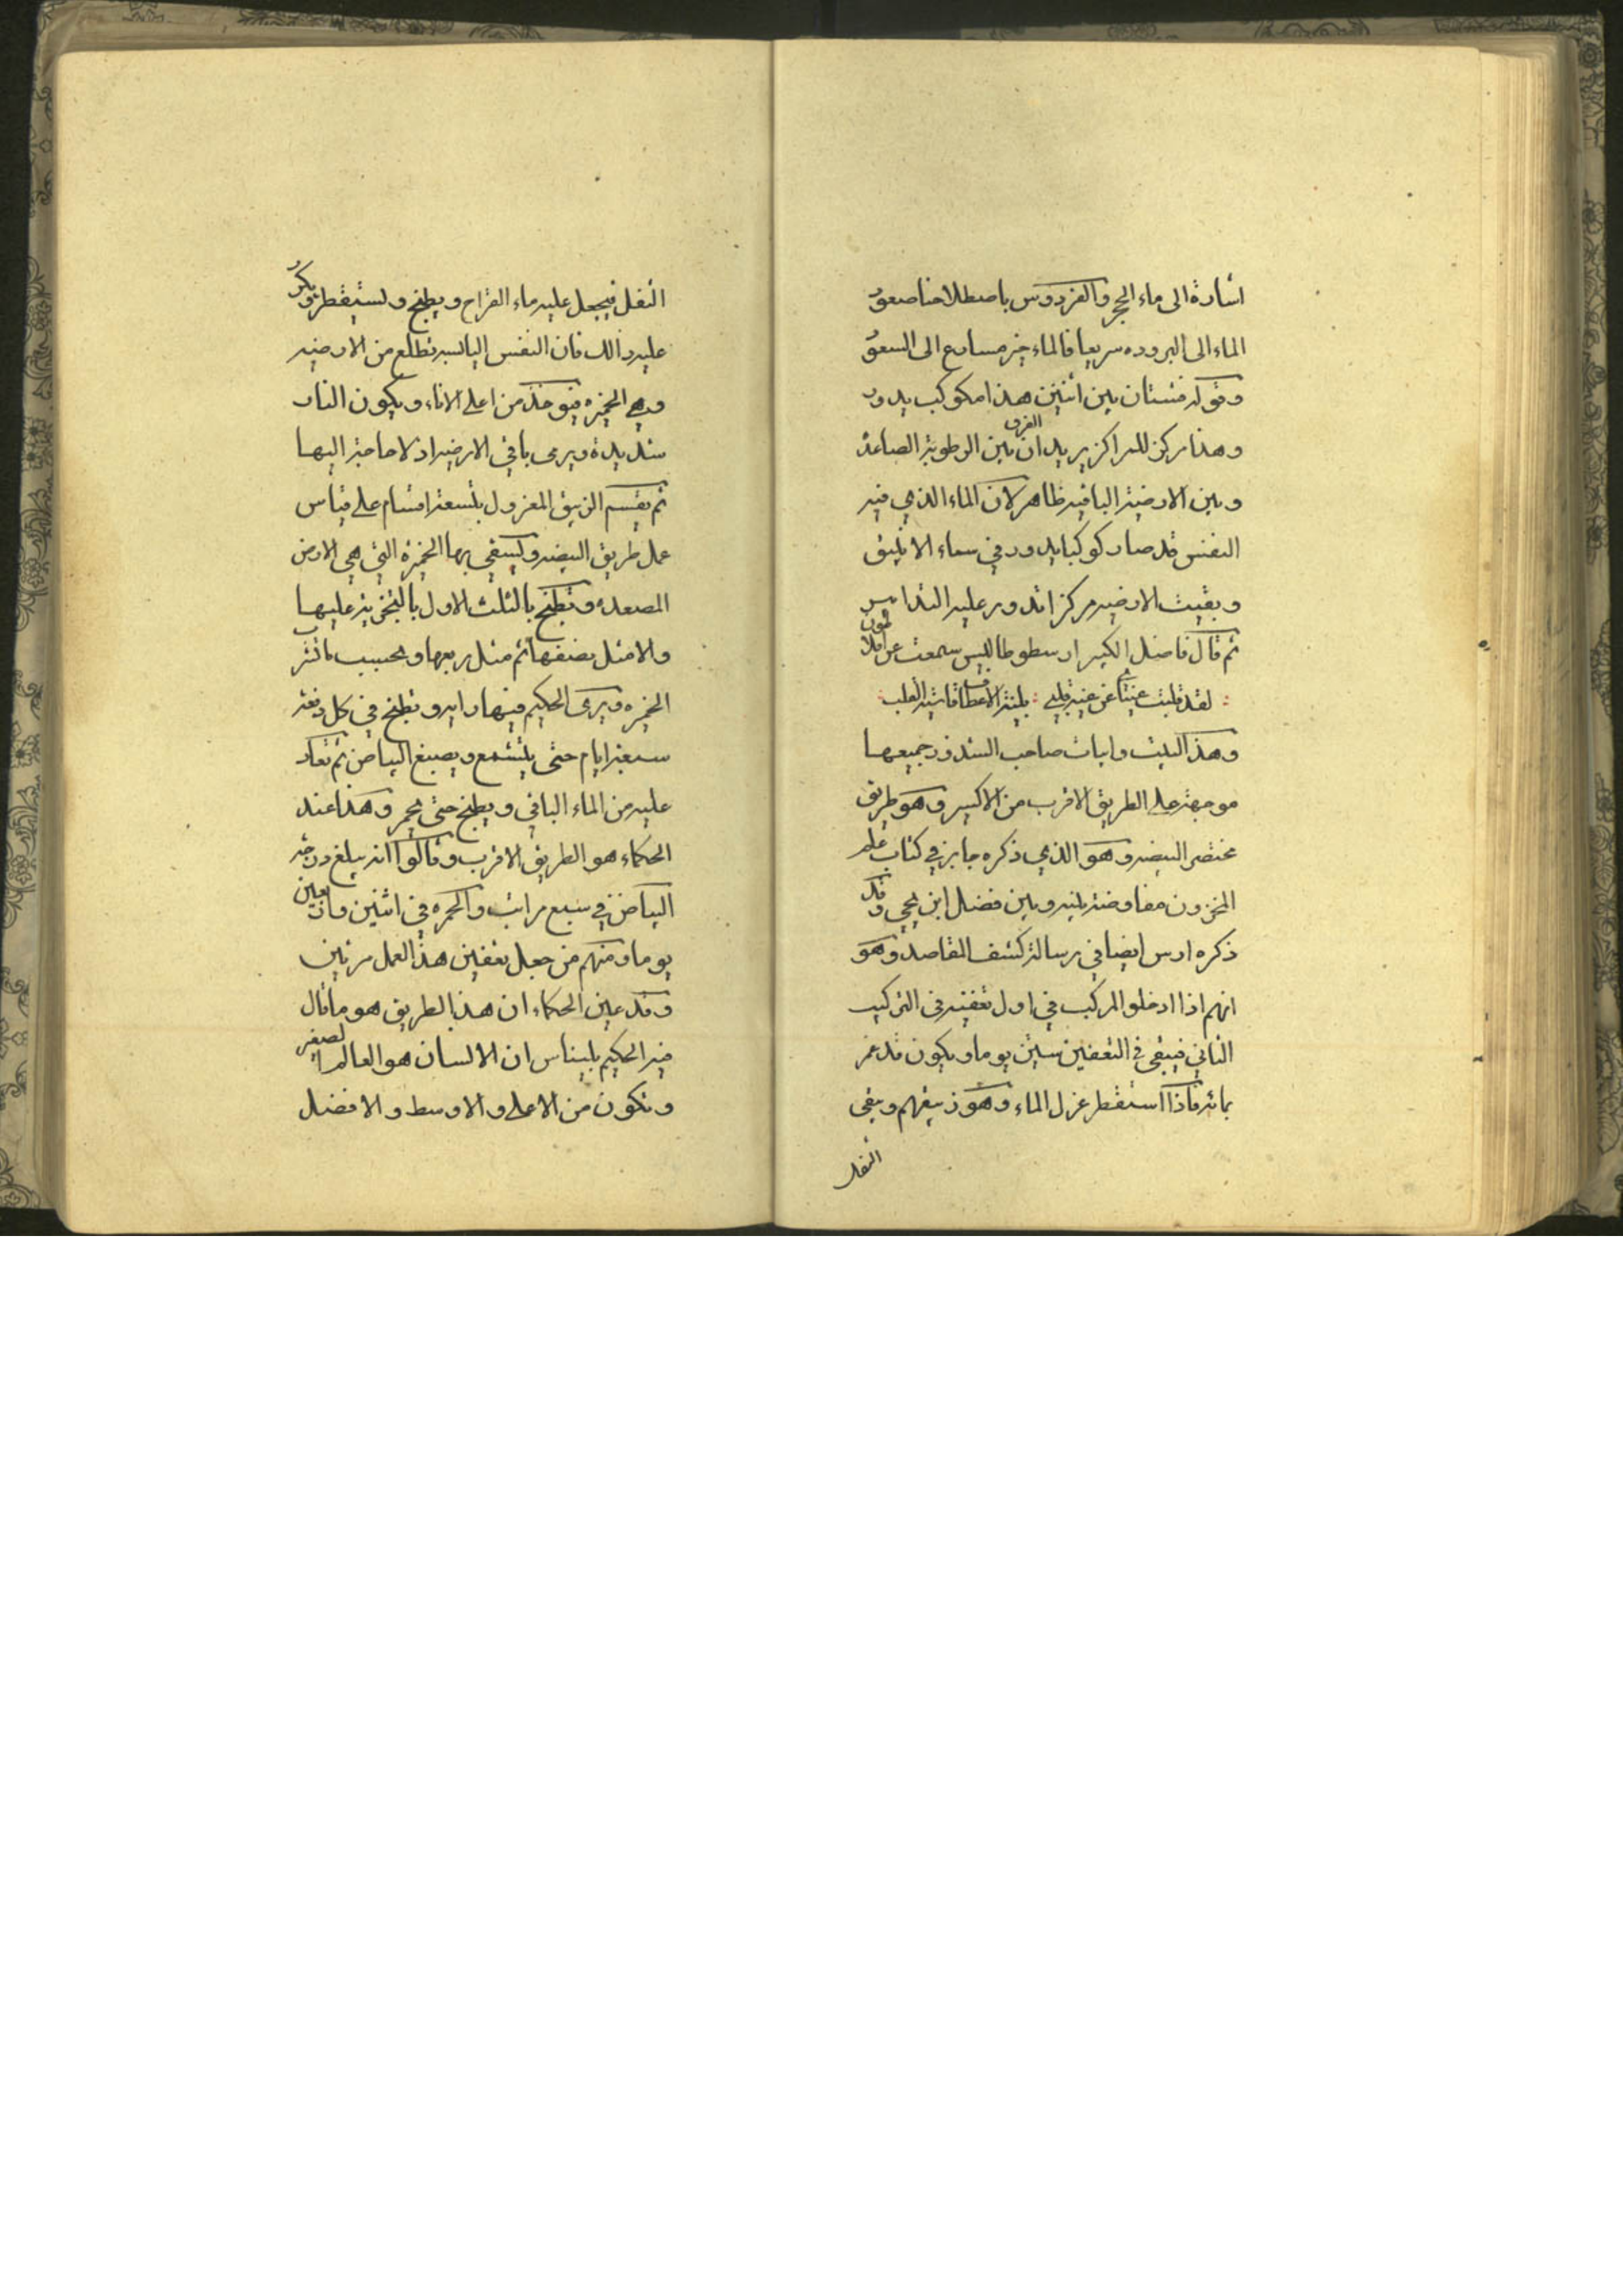 اشارة الى ماء الحجر والفردوس باصطلاحنا صعود
الماء الى البروده سريعا فالماء خير مسارع الى السعود
وقوله فشتان بين اثنين هذا مكوكب يدور
وهذا مركز للمراكز يريد ان الفرق بين الرطوبة الصاعدة
وبين الارضية الباقيه ظاهر لان الماء الذي فيه
النفس قد صار كوكبا يدور في سماء الانبيق
وبقيت الارضيه مركزا تدور عليه
ثم قال فاضل الكبير ارسطوطاليس سمعت عن افلاطون
لقد قلبت عن قلبي بلينة الاعطاف القلب
وهذا البيت وابيات صاحب الشذور جميعها
موجهة على الطريق الاقرب من الاكسير وهو طريق
مختصر البيضه وهو الذي ذكره جابر في كتاب علم
المخزون مفاوضة بينه وبين فضل ابن يحيى وقد
ذكره ارس ايضا في رسالة كشف المقاصد وهو
انهم اذا ادخلوا المركب في اول تعفينه في التركيب
الثاني فيبقى في التعفين ستين يوما ويكون قد غمر
بمائه فاذا استقطر عزل الماء وهو زيبقهم وبقى
الثفل
الثفل فيجعل عليه ماء القراح ويطبخ ويستقطر ويكرر
عليه ذالك فان النفس اليابسه تطلع من الارضيه
وهي الخميره فتوخذ من اعلى الاناء ويكون النار
شديدة ويرمى باقي الارضيه اذ لا حاجة اليها
ثم يقسم الزيبق المعزول بتسعة اقسام على قياس
عمل طريق البيضه ويسقي بها الخميرة التي هي الارض
المصعده وتطبخ بالثلث الاول بالتجزية عليها
والا مثل نصفها ثم مثل ربعها وبحسب مانثر
الخميره ويرى الحكيم فيها رايه وتطبخ في كل دفعة
سبعة ايام حتى يتشمع ويصبغ البياض ثم تعاد
عليه من الماء الباقي ويطبخ حتى يحمر وهذا عند
الحكماء هو الطريق الاقرب وقالوا انه يبلغ درجة
البياض في سبع مراتب والحمره في اثنين واربعين
يوما ومنهم من جعل تعفين هذا العمل مرتين
وقد عين الحكماء ان هذا الطريق هو ما قال
فيه الحكيم بليناس ان الانسان هو العالم الصغير
وتكون من الاعلى والاوسط والافضل